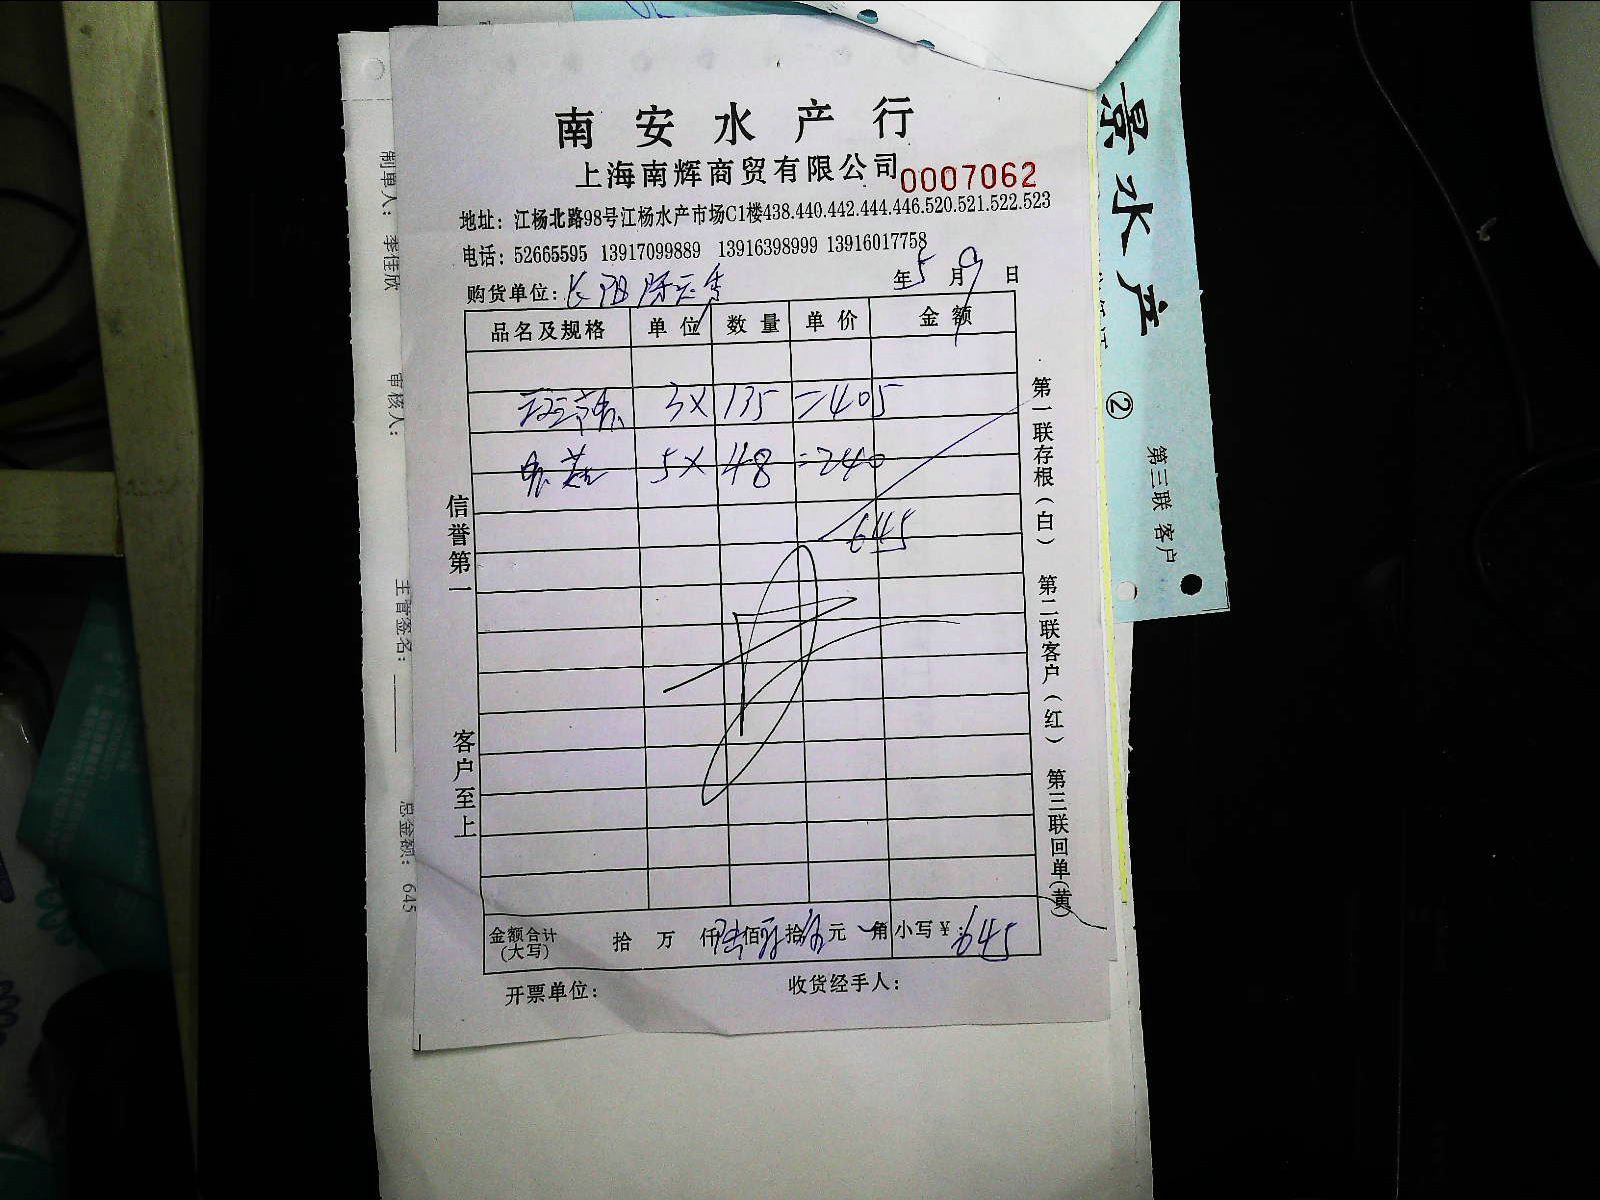 南安水产行
上海南辉商贸有限公司 0007062
地址：江杨北路98号江杨水产市场C1楼438.440.442.444.446.520.521.522.523
电话：52665595 13917099889 13916398999 13916017758
购货单位： 年5月9日
品名及规格 单位 数量 单价 金额
3× 135 =405
5× 48 =240
645
金额合计(大写) 拾 万 仟陆佰肆拾伍元 角 小写￥：645
开票单位： 收货经手人：
信誉第一 客户至上
第一联存根（白） 第二联客户（红） 第三联回单（黄）
制单人： 李佳欣 审核人： 主管签名： 总金额：645
景水产
② 第三联 客户